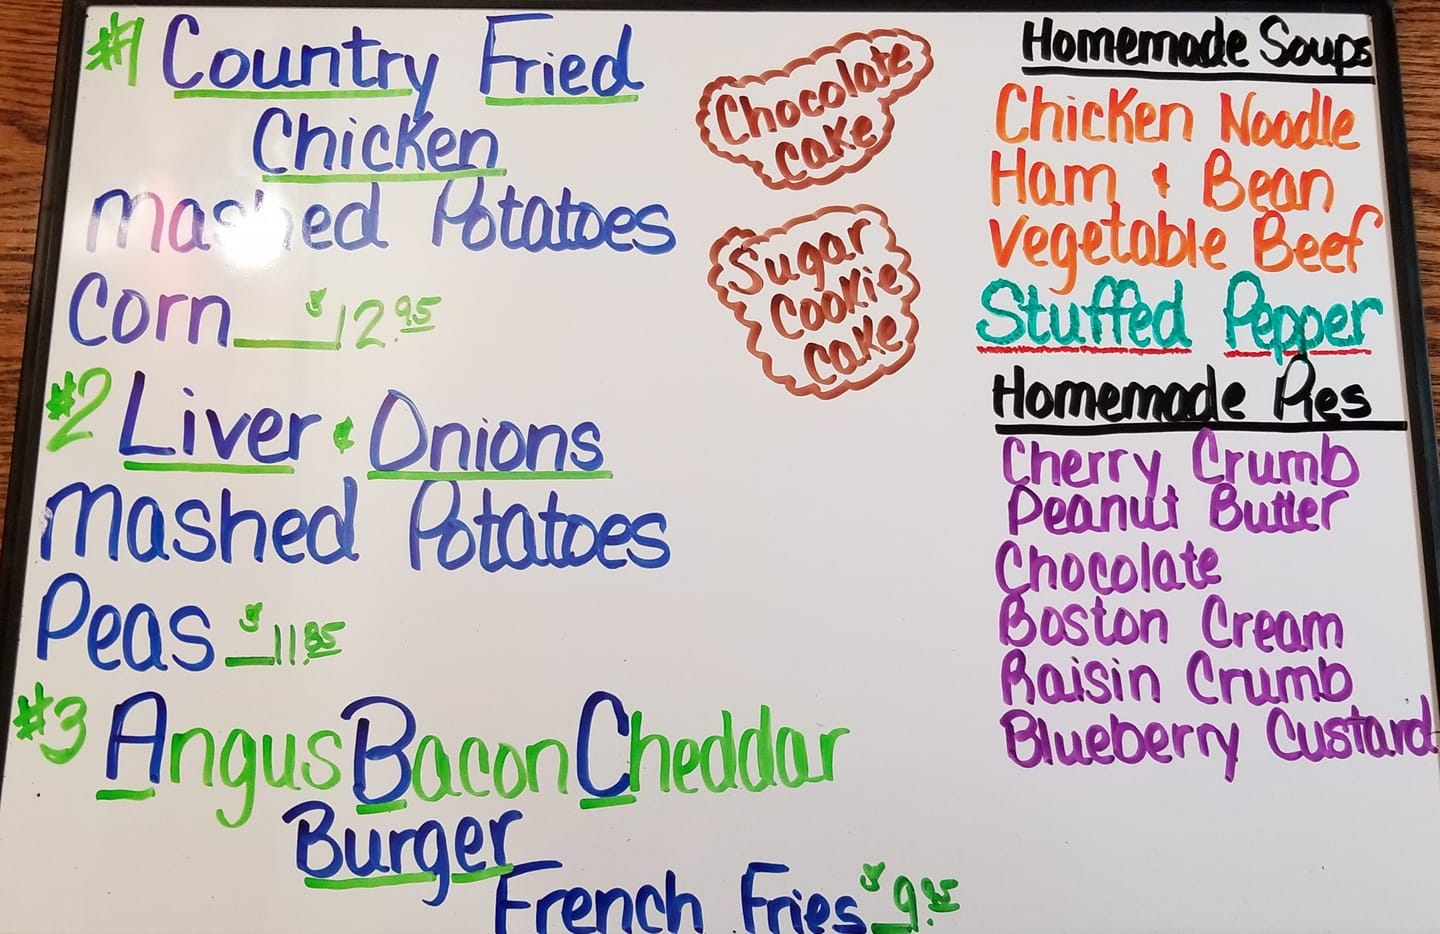 #1 Country Fried
Chicken
Mashed Potatoes
Corn $12.95
#2 Liver & Onions
Mashed Potatoes
Peas $11.85
#3 Angus Bacon Cheddar
Burger
French Fries $9.95
Chocolate
Cake
Sugar
Cookie
Cake
Homemade Soups
Chicken Noodle
Ham & Bean
Vegetable Beef
Stuffed Pepper
Homemade Pies
Cherry Crumb
Peanut Butter
Chocolate
Boston Cream
Raisin Crumb
Blueberry Custard